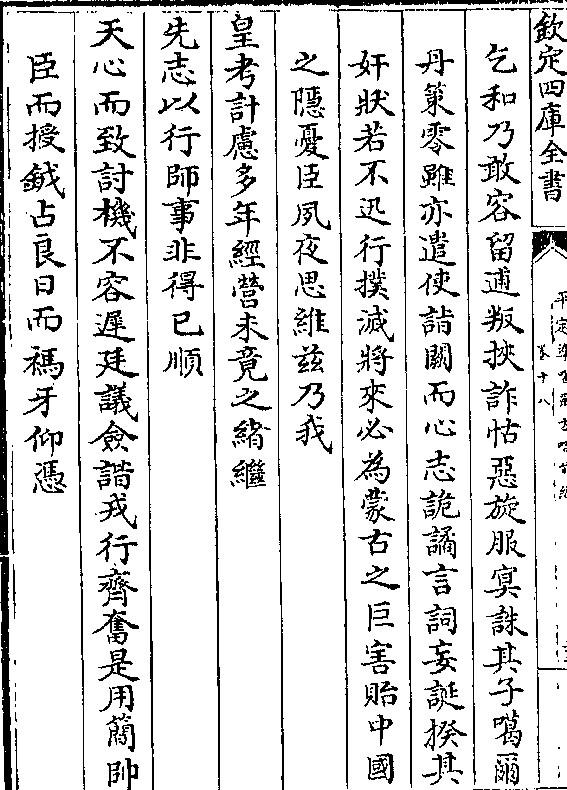 欽定四庫全書
卷十八
乞和乃敢容留逋叛挾詐怙惡旋服冥誅其子噶爾
丹策零雖亦遣使詣闕而心志詭譎言詞妄誕揆其
奸狀若不迅行撲滅將來必為蒙古之巨害貽中國
之隱憂臣夙夜思維兹乃我
皇考計慮多年經營未竟之緒繼
先志以行師事非得已順
天心而致討機不容遲廷議僉諧戎行齊奮是用簡帥
臣而授鉞占良日而禡牙仰憑